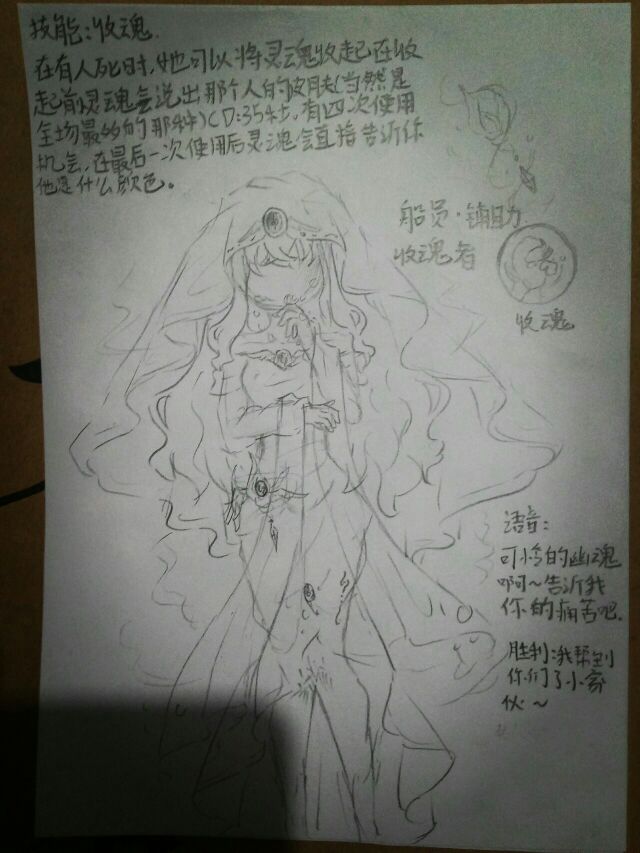 技能：收魂.
在有人死时，她可以将灵魂收起在收
起前灵魂会说出那个人的皮肤(当然是
全场最多的那种)CD:35秒。有四次使用
机会，在最后一次使用后灵魂会直接告诉你
他是什么颜色。
船员·辅助
收魂者
收魂
语音：
可怜的幽魂
啊~告诉我
你的痛苦吧.
胜利：我帮到
你们了小家
伙~